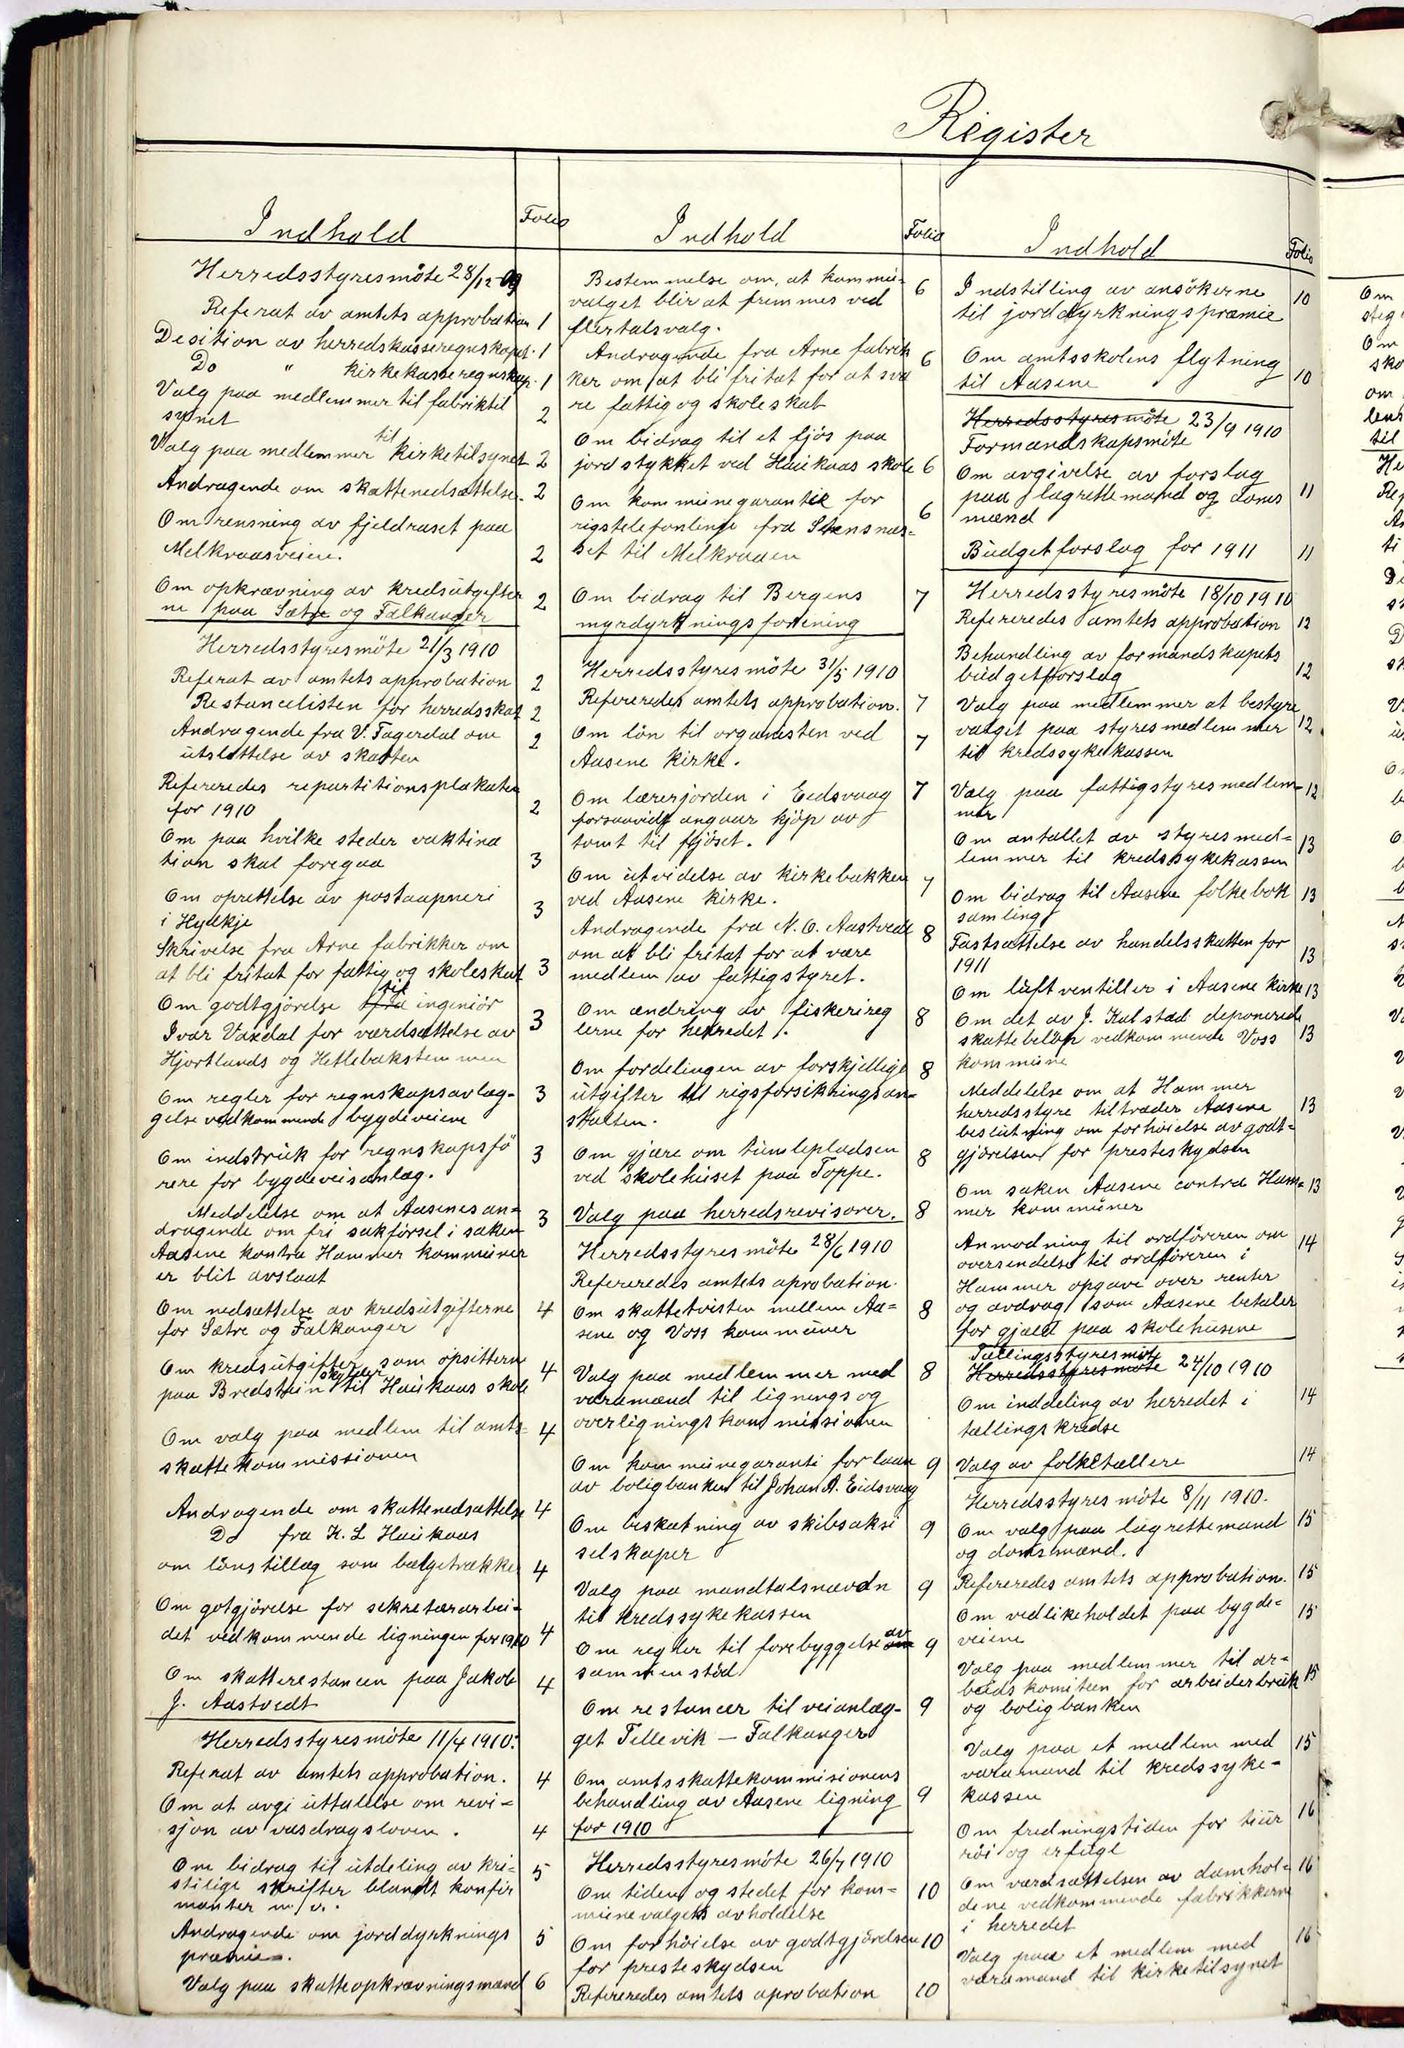 Register
Indhold
Folio
Herredsstyresmöte 28/12-09
Referat av amtets approbation 1
Desition av herredskasseregnskapet. 1
Do " kirkekasseregnskap. 1
Valg paa medlemmer til fabriktil
synet 2
Valg paa medlemmer til kirketilsynet 2
Andragende om skattenedsættelse. 2
Om rensning av fjeldraset paa
Melkraasveien. 2
Om opkrævning av kredsutgifter
ne paa Sætre og Falkanger 2
Herredsstyresmöte 21/3 1910
Referat av amtets approbation 2
Restancelisten for herredsskat 2
Andragende fra V. Fagerdal om 2
utslettelse av skatten
Refereredes repartitionsplakaten
for 1910 2
Om paa hvilke steder vaktina
tion skal foregaa 3
Om oprettelse av postaapneri
i Hylkje 3
Skrivelse fra Arne fabrikker om
at bli fritat for fattig og skoleskat 3
Om godtgjörelse fra til ingeniör
Ivar Vaxdal for værdsættelse av 3
Hjortlands og Hetlebakstemmen
Om regler for regnskapsavlæg- 3
gelse vedkommende bygdeveiene
Om indstruk for regnskapsfö 3
rere for bygdeveisanlæg.
Meddelelse om at Aasenes an-
dragende om fri sakförsel i saken 3
Aasene kontra Hammer kommuner
er blit avslaat
Om nedsættelse av kredsutgifterne 4
for Sætre og Falkanger
Om kredsutgifter som opsitterne
paa Bredstein skylder til Haukaas skole 4
Om valg paa medlem til amts- 4
skattekommissionen
Andragende om skattenedsættelse 4
Do fra K. L Haukaas
om lönstillæg som bælgetrækker 4
Om gotgjörelse for sekretærarbei-
det vedkommende ligningen for 1910 4
Om skatterestancen paa Jakob 4
J. Aastvedt
Herredsstyresmöte 11/4 1910.
Referat av amtets approbation. 4
Om at avgi uttalelse om revi-
sjon av vasdragsloven. 4
Om bidrag til utdeling av kri- 5
stilige skrifter blandt konfir
manter m/v.
Andragende om jorddyrknings 5
præmie.
Valg paa skatteopkrævningsmænd 6
Indhold
Folio
Bestemmelse om, at kommu-
valget blir at fremmes ved 6
flertalsvalg.
Andragende fra Arne fabrik 6
ker om at bli fritat for at sva
re fattig og skoleskat
Om bidrag til et fjös paa
jordstykket ved Haukaas skole 6
Om kommunegarantie for
rigstelefonlinje fra Stensnæs- 6
set til Melkraaen
Om bidrag til Bergens 7
myrdyrkningsforening
Herredsstyresmöte 31/5 1910
Refereredes amtets approbation. 7
Om lön til organisten ved 7
Aasene kirke.
Om lærerjorden i Eidsvaag 7
forsaavidt angaar kjöp av
tomt til fjöset.
Om utvidelse av kirkebakken 7
ved Aasene kirke.
Andragende fra N. O. Aastvedt 8
om at bli fritat for at være
medlem av fattigstyret.
Om ændring av fiskerireg 8
lerne for herredet.
Om fordelingen av forskjellige 8
utgifter til rigsforsikringsan-
stalten.
Om gjære om tumlepladsen 8
ved skolehuset paa Toppe.
Valg paa herredsrevisorer. 8
Herredsstyresmöte 28/6 1910
Refereredes amtets aprobation.
Om skattetvisten mellem Aa- 8
sene og Voss kommuner
Valg paa medlemmer med 8
varamænd til lignings og
overligningskommissionen
Om kommunegaranti for laan 9
av boligbanken til Johan A. Eidsvaag
Om beskatning av skibsaksi 9
selskaper
Valg paa mandtalsnævdn 9
til kredssykekassen
Om regler til forebyggelse om av 9
sammenstöd
Om restancer til veianlæg- 9
get Tellevik — Falkanger
Om amtsskattekommisionens
behandling av Aasene ligning 9
for 1910
Herredsstyresmöte 26/7 1910
Om tiden og stedet for kom- 10
munevalgets avholdelse
Om forhöielse av godtgjörelsen 10
for presteskydsen
Refereredes amtets aprobation 10
Indhold
Folio
Indstilling av ansökerne 10
til jorddyrkningspræmie
Om amtsskolens flytning
til Aasene 10
Herredsstyresmöte 23/9 1910
Formandskapsmöte
Om avgivelse av forslag
paa lagrettemænd og doms 11
mænd
Budgetforslag for 1911 11
Herredsstyresmöte 18/10 1910
Refereredes amtets approbation 12
Behandling av formandskapets
budgetforslag 12
Valg paa medlemmer at bestyre
valget paa styresmedlemmer 12
til kredssykekassen
Valg paa fattigstyresmedlem- 12
mer
Om antallet av styresmed-
lemmer til kredssykekassen 13
Om bidrag til Aasene folkebok 13
samling
Fastsættelse av handelsskatten for
1911 13
Om luftventiller i Aasene kirke 13
Om det av J. Kalstad deponerede
skattebelöp vedkommende Voss 13
kommune
Meddelelse om at Hammer
herredsstyre tiltræder Aasene 13
beslutning om forhöielse av godt-
gjörelsen for presteskydsen
Om saken Aasene contra Ham- 13
mer kommuner
Anmodning til ordföreren om 14
oversendelse til ordföreren i
Hammer opgave over renter
og avdrag som Aasene betaler
for gjæld paa skolehusene
Tællingsstyresmöte
Herredsstyresmöte 24/10 1910
Om inddeling av herredet i 14
tællingskredse
Valg av folketællere 14
Herredsstyresmöte 8/11 1910.
Om valg paa lagrettemænd 15
og domsmænd.
Refereredes amtets approbation. 15
Om vedlikeholdet paa bygde- 15
veiene
Valg paa medlemmer til ar-
beidskomiteen for arbeiderbruk 15
og boligbanken
Valg paa et medlem med 15
varamand til kredssyke-
kassen
Om fredningstiden for tiur 16
röi og årfugl
Om værdsættelsen av damhol- 16
dene vedkommende fabrikkerne
i herredet
Valg paa et medlem med 16
varamand til kirketilsynet